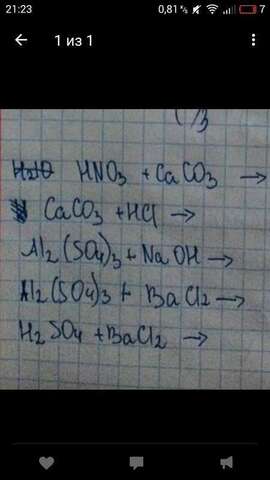 21:23 0,81 % 7
1 из 1
()3
H2O HNO3 + CaCO3 →
CaCO3 + HCl →
Al2(SO4)3 + NaOH →
Al2(SO4)3 + BaCl2 →
H2SO4 + BaCl2 →